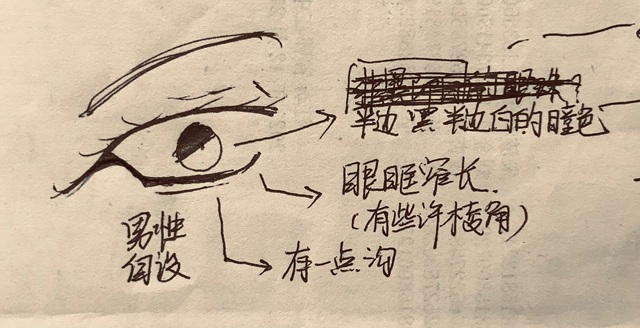 半边黑半边白的瞳色
眼眶窄长.
(有些许棱角)
男性
有一点沟